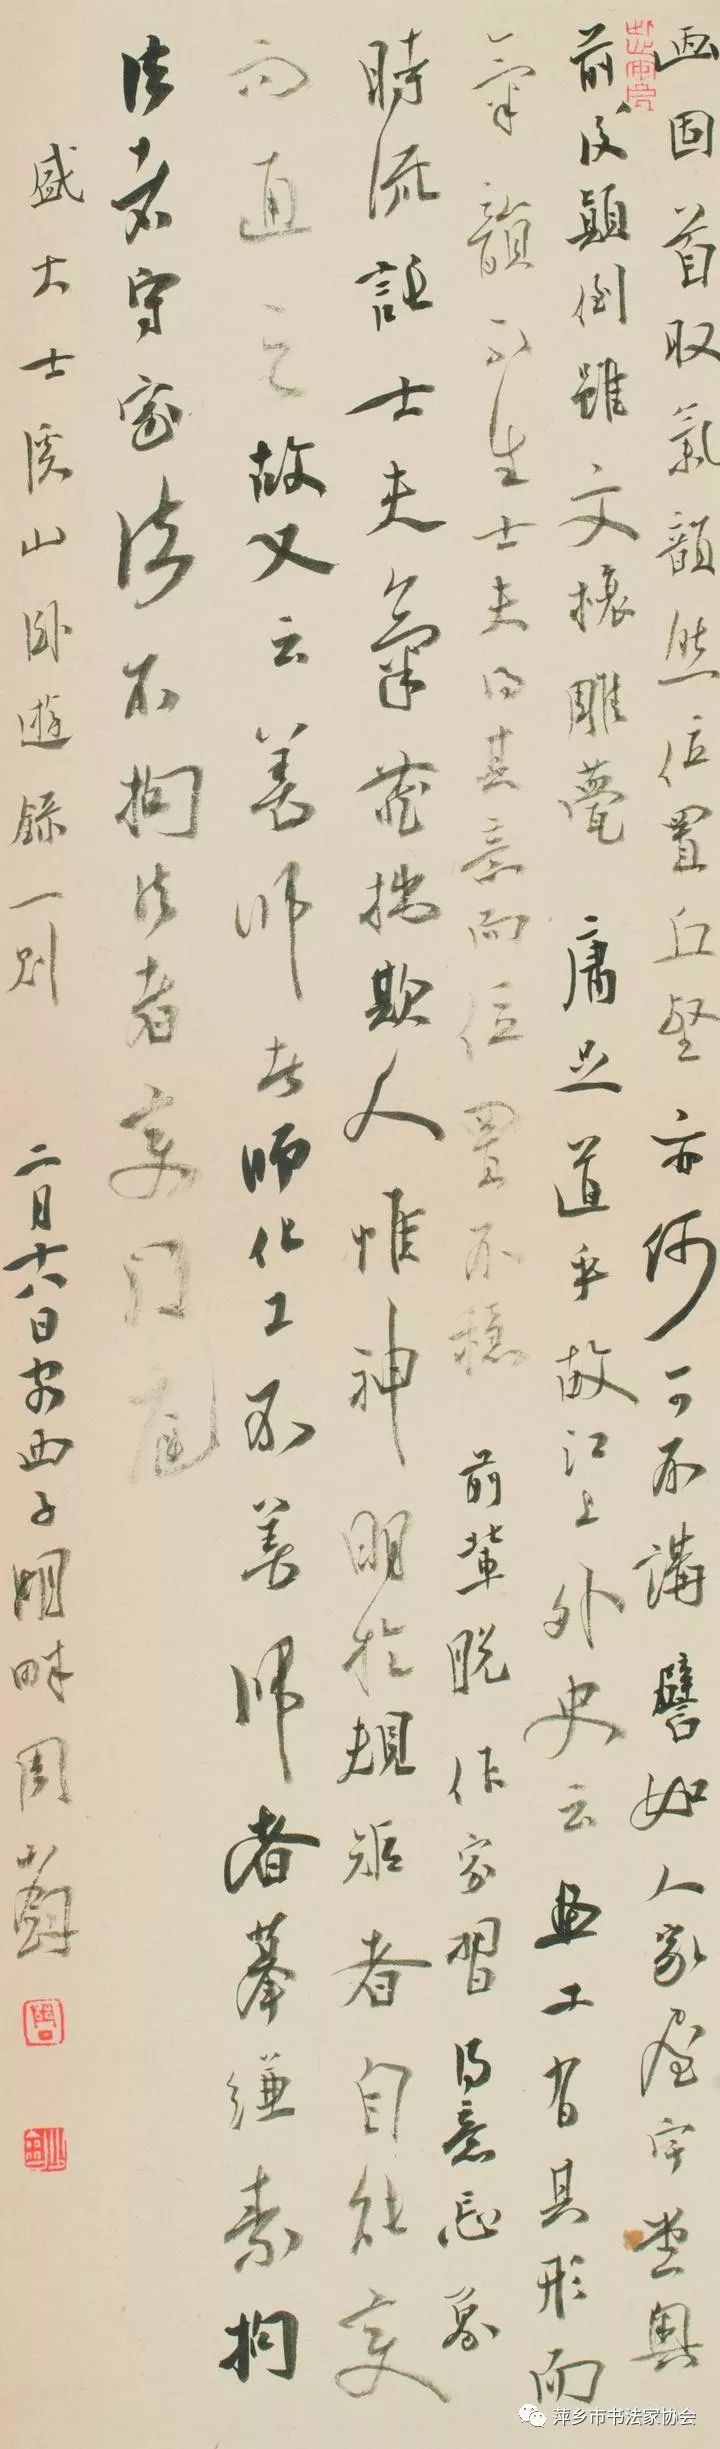 画固首取氣韻然位置丘壑亦何可不講譬如人家屋宇堂奥
前後顛倒雖文榱雕甍庸足道乎故江上外史云画工有其形而
氣韻不生士夫得其意而位置不穩前輩脱作家習得意忘象
時流託士夫氣藏拙欺人惟神明於規矩者自能變
而通之故又云善师者師化工不善师者摹缣素拘
法者守家法不拘法者變門庭
盛大士溪山卧遊錄一则
二月十八日安西子湖畔周
萍乡市书法家协会